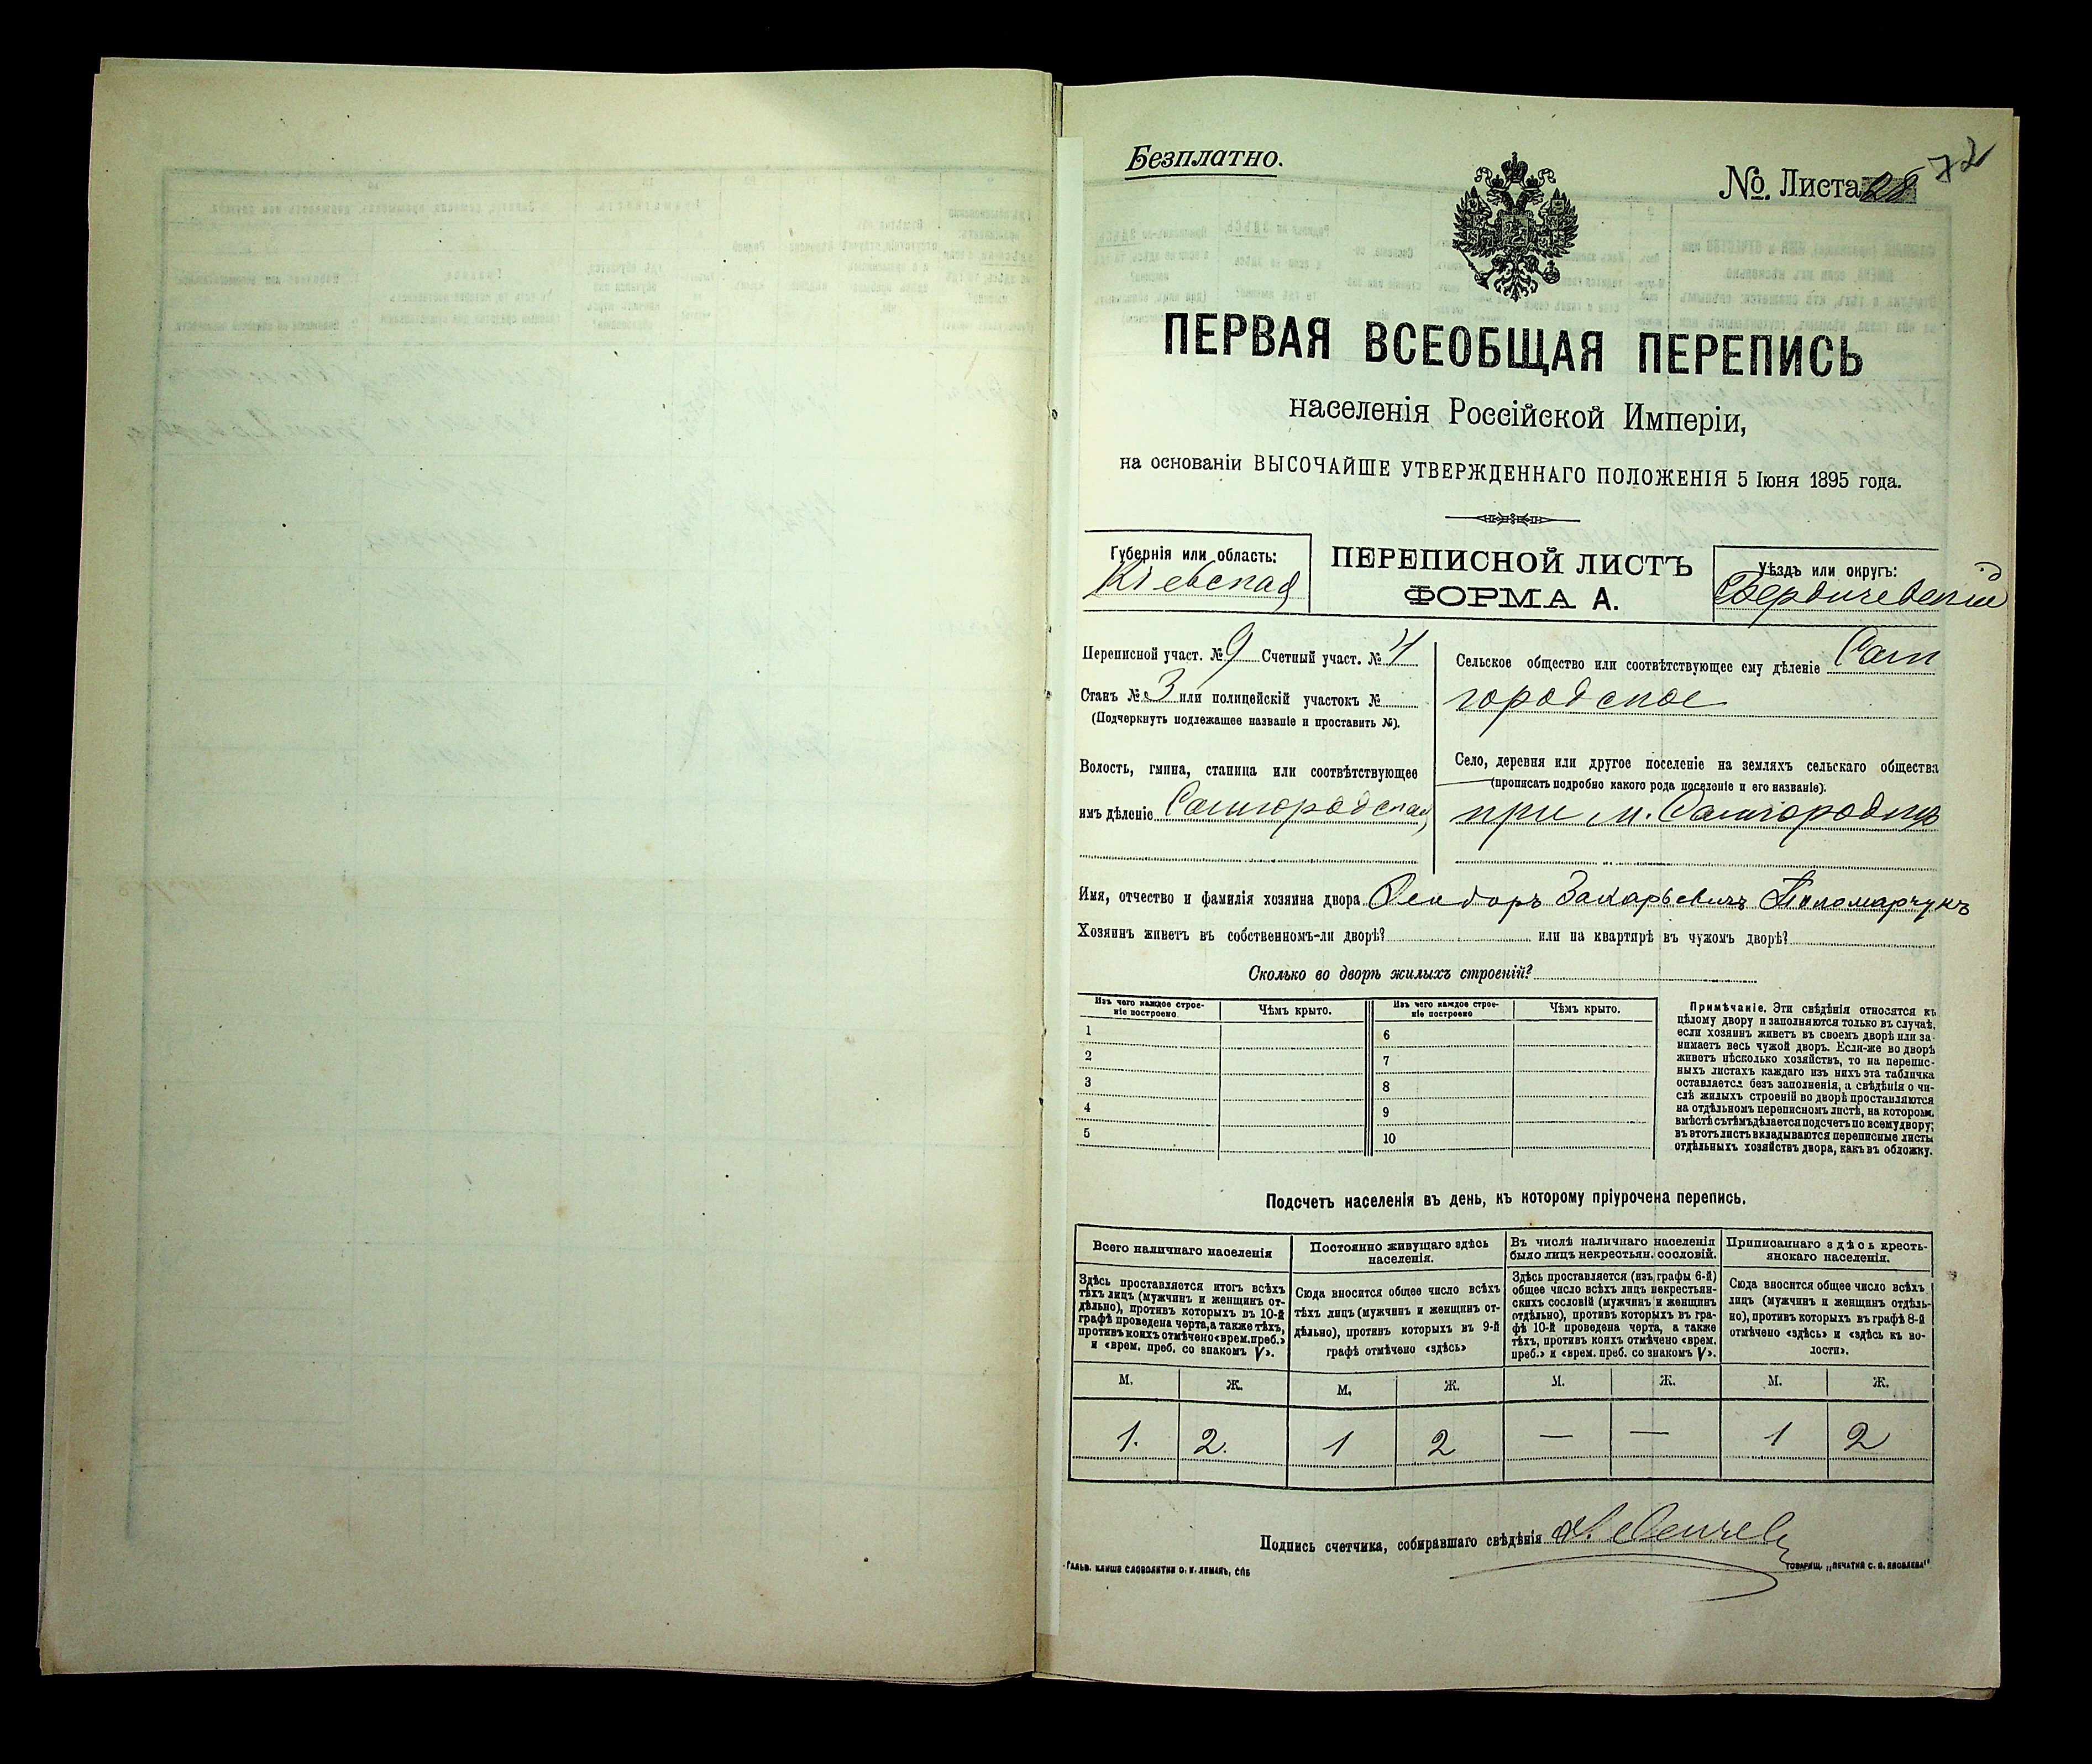 Безплатно.
№. Листа 28
72
ПЕРВАЯ ВСЕОБЩАЯ ПЕРЕПИСЬ
населенія Россійской Имперіи,
на основаніи ВЫСОЧАЙШЕ УТВЕРЖДЕННАГО ПОЛОЖЕНІЯ 5 Іюня 1895 года.
Губернія или область:
Кіевская
ПЕРЕПИСНОЙ ЛИСТЪ
ФОРМА А.
Уѣздъ или округъ:
Бердичевскій
Переписной участ. № 9 Счетный участ. № 4
Станъ № 3 или полицейскій участокъ №
(Подчеркнуть подлежащее названіе и проставить №).
Волость, гмина, станица или соотвѣтствующее
имъ дѣленіе Самгородская
Сельское общество или соотвѣтствующее ему дѣленіе Сам
городское
Село, деревня или другое поселеніе на земляхъ сельскаго общества
(прописать подробно какого рода поселеніе и его названіе).
при м. Самгородкѣ
Имя, отчество и фамилія хозяина двора Феодоръ Захарьевичъ Пономарчукъ
Хозяинъ живетъ въ собственномъ-ли дворѣ? или на квартирѣ въ чужомъ дворѣ?
Сколько во дворѣ жилыхъ строеній?
Изъ чего каждое строе-
ніе построено
Чѣмъ крыто.
Изъ чего каждое строе-
ніе построено
Чѣмъ крыто.
1
2
3
4
5
6
7
8
9
10
Примѣчаніе. Эти свѣдѣнія относятся къ
цѣлому двору и заполняются только въ случаѣ,
если хозяинъ живетъ въ своемъ дворѣ или за-
нимаетъ весь чужой дворъ. Если-же во дворѣ
живетъ нѣсколько хозяйствъ, то на перепис-
ныхъ листахъ каждаго изъ нихъ эта табличка
оставляется безъ заполненія, а свѣдѣнія о чи-
слѣ жилыхъ строеній во дворѣ проставляются
на отдѣльномъ переписномъ листѣ, на котором.
вмѣстѣ съ тѣмъ дѣлается подсчетъ по всему двору;
въ этотъ листъ вкладываются переписные листы
отдѣльныхъ хозяйствъ двора, какъ въ обложку.
Подсчетъ населенія въ день, къ которому пріурочена перепись.
Всего наличнаго населенія
Здѣсь проставляется итогъ всѣхъ
тѣхъ лицъ (мужчинъ и женщинъ от-
дѣльно), противъ которыхъ въ 10-й
графѣ проведена черта, а также тѣхъ,
противъ коихъ отмѣчено «врем. преб.»
и «врем. преб. со знакомъ V».
Постоянно живущаго здѣсь
населенія.
Сюда вносится общее число всѣхъ
тѣхъ лицъ (мужчинъ и женщинъ от-
дѣльно), противъ которыхъ въ 9-й
графѣ отмѣчено «здѣсь»
Въ числѣ наличнаго населенія
было лицъ некрестьян. сословій.
Здѣсь проставляется (изъ графы 6-й)
общее число всѣхъ лицъ некрестьян-
скихъ сословій (мужчинъ и женщинъ
отдѣльно), противъ которыхъ въ гра-
фѣ 10-й проведена черта, а также
тѣхъ, противъ коихъ отмѣчено «врем.
преб.» и «врем. преб. со знакомъ V».
Приписаннаго здѣсь кресть-
янскаго населенія.
Сюда вносится общее число всѣхъ
лицъ (мужчинъ и женщинъ отдѣль-
но), противъ которыхъ въ графѣ 8-й
отмѣчено «здѣсь» и «здѣсь къ во-
лости».
М. Ж. М. Ж. М. Ж. М. Ж.
1. 2. 1 2 — — 1 2
Подпись счетчика, собиравшаго свѣдѣнія
ГАЛЬВ. КЛИШЕ СЛОВОЛИТНИ О. И. ЛЕМАНЪ, СПБ
ТОВАРИЩ. „ПЕЧАТНИ С. П. ЯКОВЛЕВА"